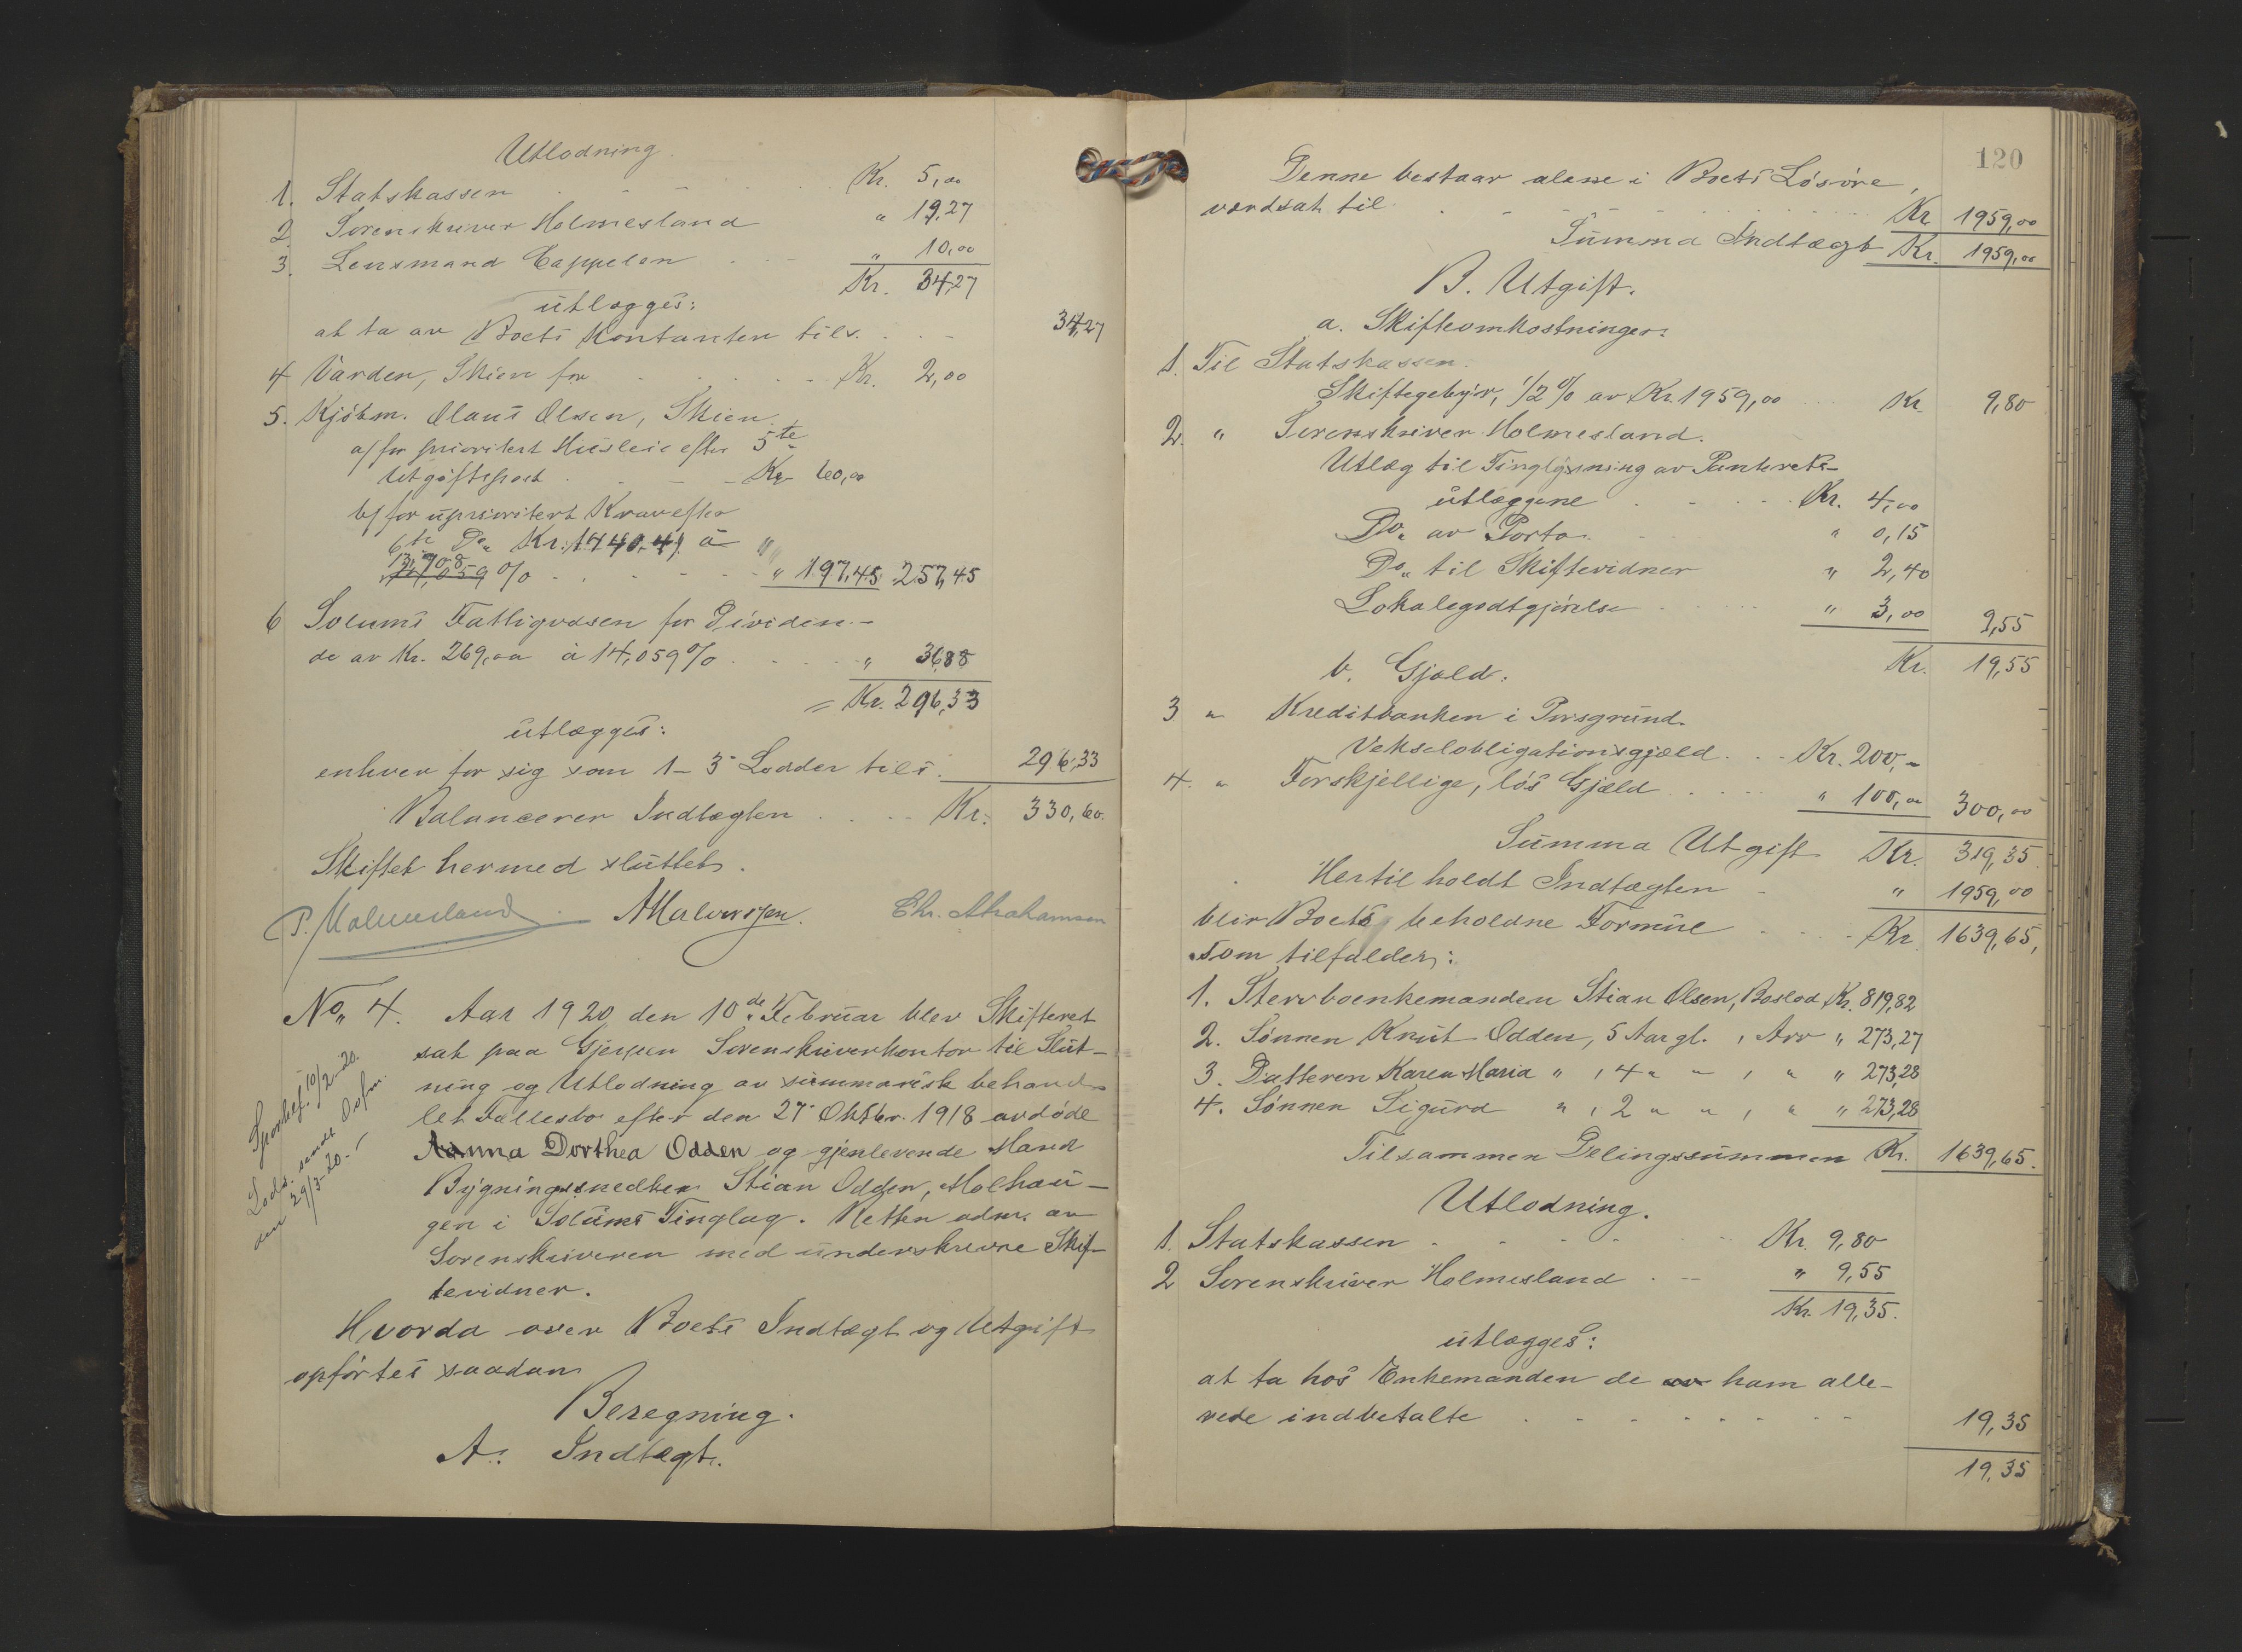 Utlodning.
1. Statskassen . . . . Kr. 5,00
2. Sorenskriver Holmesland " 19,27
3. Lensmand Cappelen . . " 10,00
Kr. 34,27
utlægges:
at ta av Boets Kontanter tils. . . . 34,27
4 Varden, Skien for . . . . Kr. 2,00
5. Kjøbm. Olaus Olsen, Skien
a/ for prioritert Husleie efter 5te
Utgiftspost . . . Kr. 60,00
b/ for uprioritert Krav efter
6te Do. Kr. 1440,41 à "
13,708
14,059 % . . . . " 197,45 257,45
6 Solums Fattigvæsen for Dividen-
de av Kr. 269,00 à 14,059 % . . . " 36,88
= Kr. 296,33
utlægges:
enhver for sig som 1-3 Lodder tils. 296,33
Balancerer Indtægten . . . Kr. 330,60.
Skiftet hermed sluttet.
P. Holmesland Chr. Abrahamsen
No. 4. Aar 1920 den 10de Februar blev Skifteret
sat paa Gjerpen Sorenskriverkontor til Slut-
ning og Utlodning av summarisk behand-
let Fællesbo efter den 27. Oktbr. 1918 avdøde
Anna Dorthea Odden og gjenlevende Mand
Bygningssnedker Stian Odden, Molhau-
gen i Solums Tinglag. Retten adm. av
Sorenskriveren med underskrevne Skif-
tevidner.
10/2-20.
den 29/3-20.
Hvorda over Boets Indtægt og Utgift
opførtes saadan
Beregning.
A. Indtægt.
120
Denne bestaar alene i Boets Løsøre,
værdsat til . . . . Kr 1959,00
Summa Indtægt Kr. 1959,00
B. Utgift.
a. Skifteomkostninger.
1. Til Statskassen.
Skiftegebyr, 1/2 % av Kr. 1959,00 . . Kr. 9,80
2. " Sorenskriver Holmesland.
Utlæg til Tinglysning av Panterets-
utlæggene . . . Kr. 4,00
Do. av Porto . . " 0,15
Do. til Skiftevidner " 2,40
Lokalegodtgjørelse . . . " 3,00 9,55
Kr. 19,55
b. Gjæld.
3 " Kreditbanken i Porsgrund.
Vekselobligationsgjæld . . Kr. 200,-
4. " Forskjellige, løs Gjæld . . . " 100,00 300,00
Summa Utgift Kr. 319,35
Hertil holdt Indtægten . " 1959,00
blir Boets beholdne Formue . . . Kr 1639,65,
som tilfalder:
1. Stervboenkemanden Stian Olsen, Boslod Kr. 819,82
2. Sønnen Knut Odden, 5 Aar gl. , Arv " 273,27
3. Datteren Karen Maria " , 4 " " , " " 273,28
4. Sønnen Sigurd " , 2 " " , " " 273,28
Tilsammen Delingssummen Kr. 1639,65.
Utlodning.
1. Statskassen . . . . Kr. 9,80
2 Sorenskriver Holmesland . . " 9,55
Kr. 19,35.
utlægges:
at ta hos Enkemanden de av ham alle-
rede indbetalte . . . . . 19,35
19,35